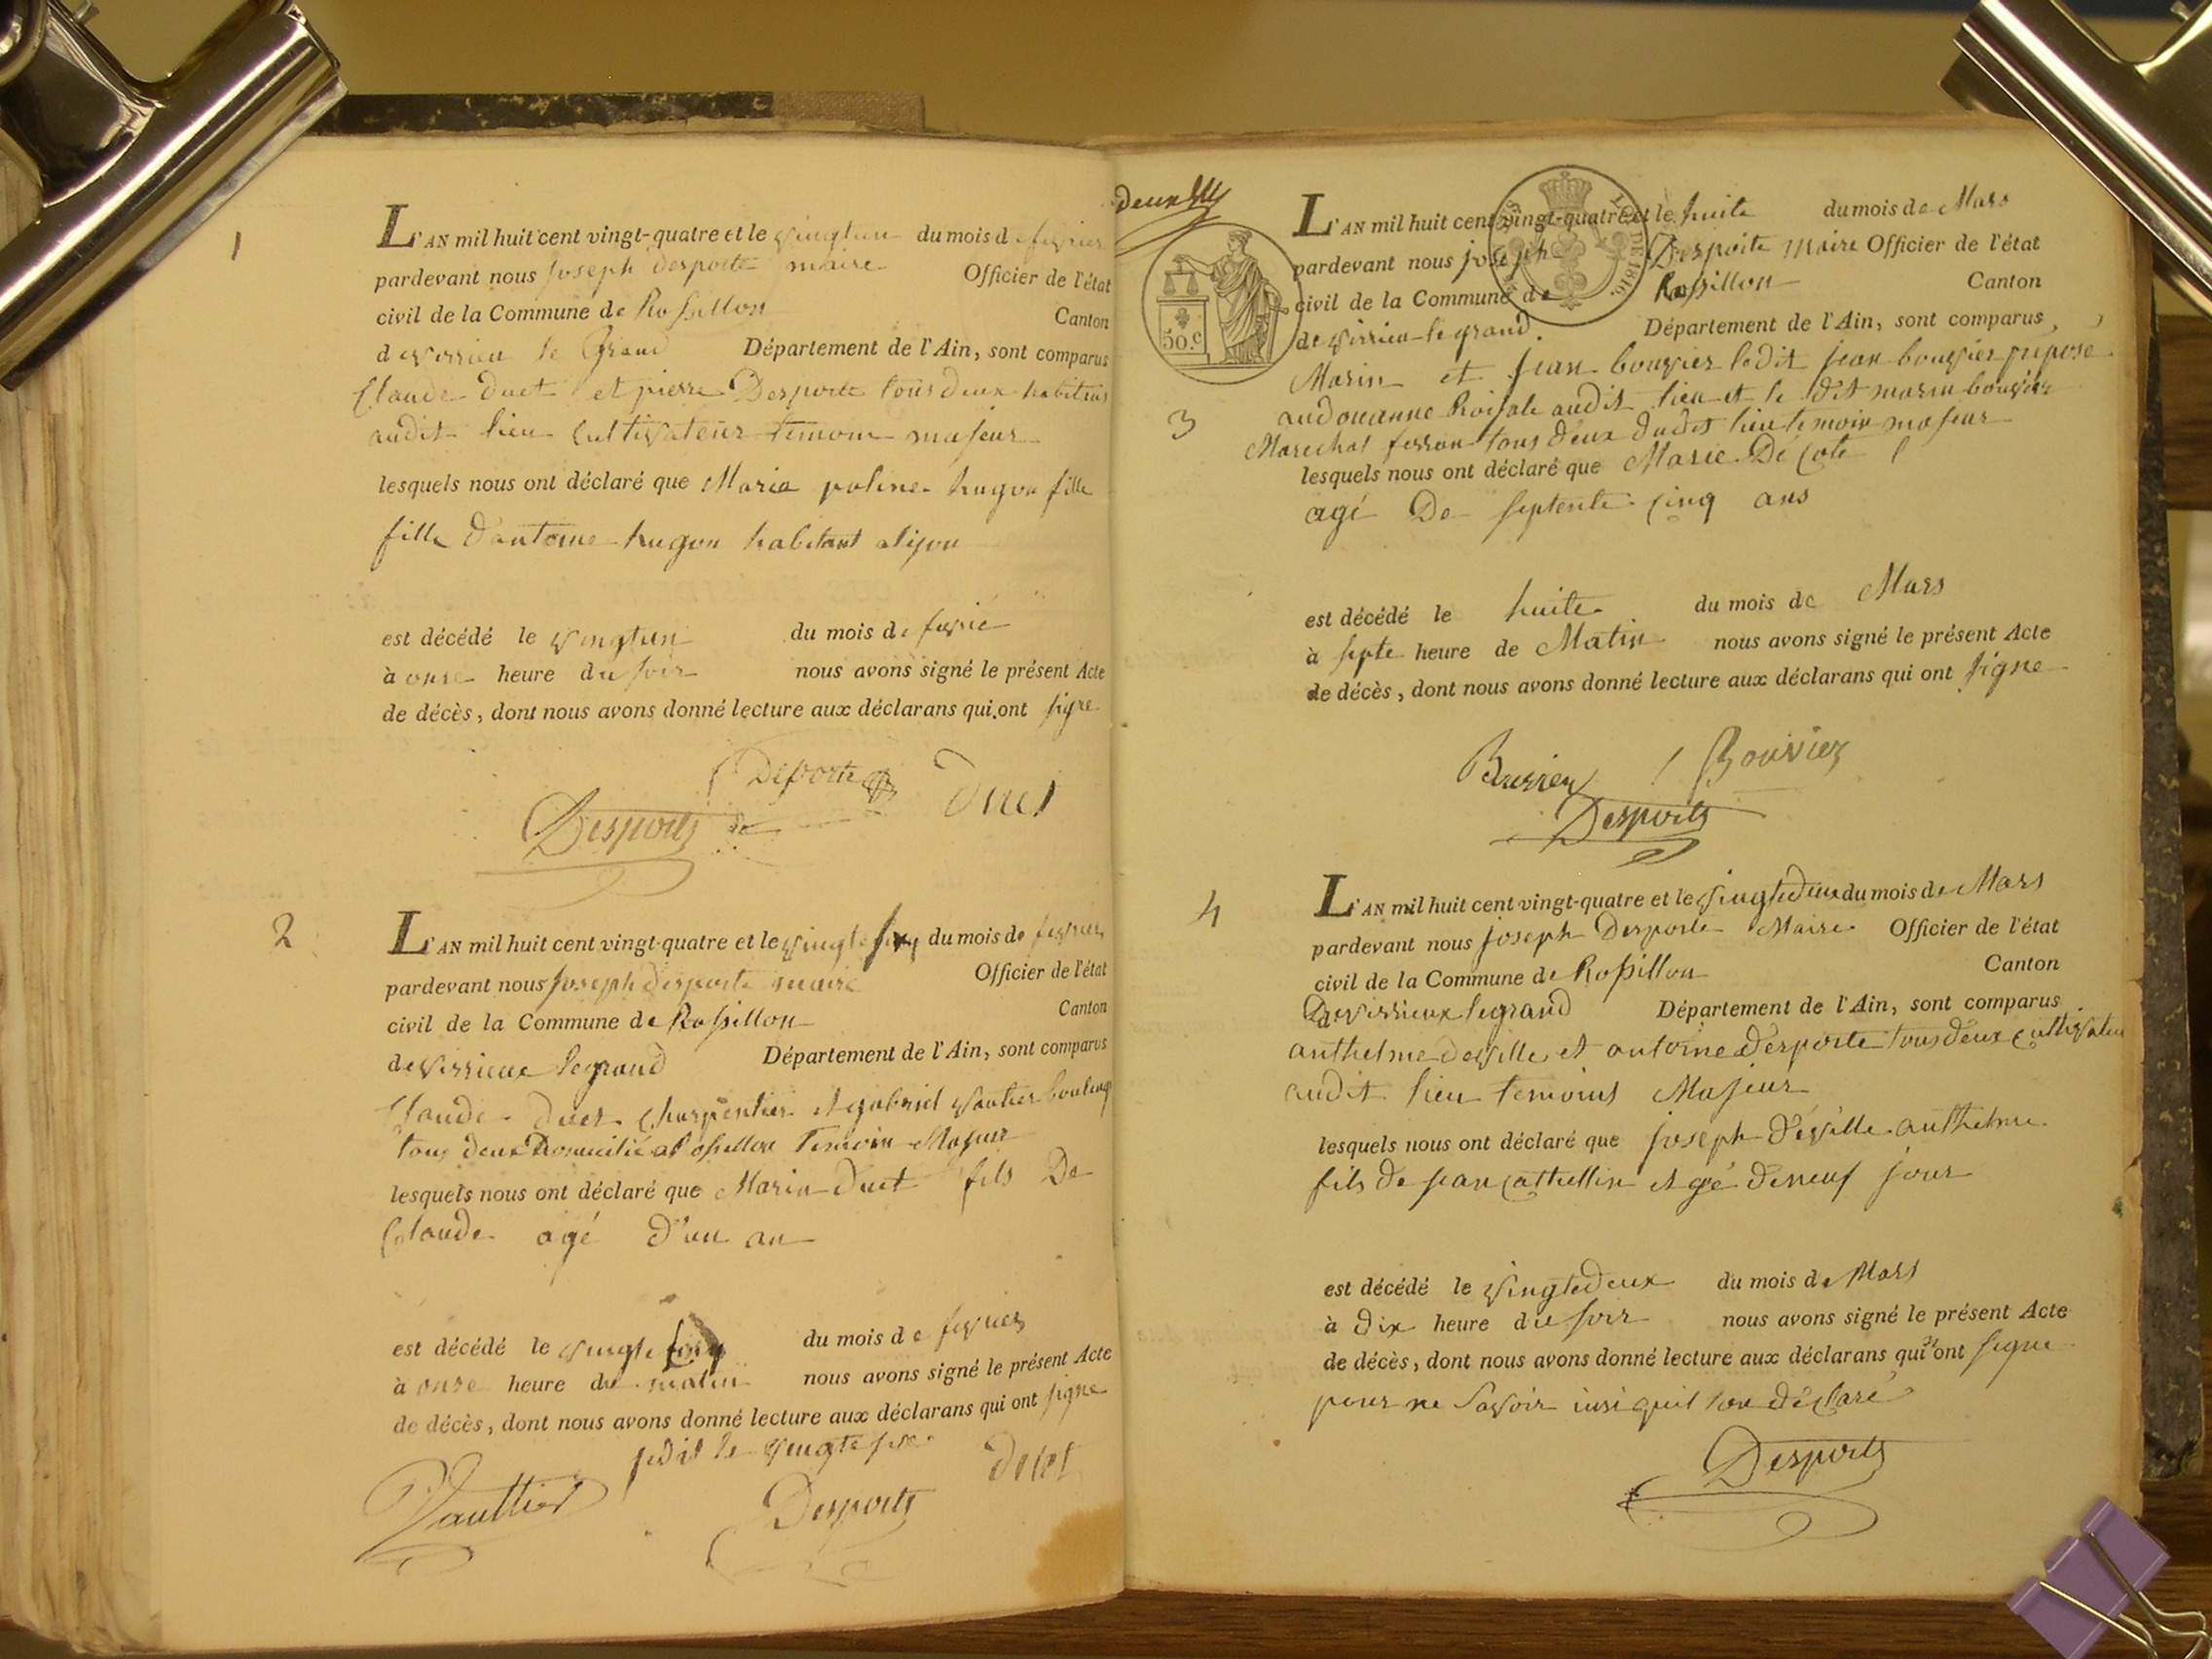 1
L'AN mil huit cent vingt-quatre et le vingtun du mois de fevrier
pardevant nous Joseph Desporte maire Officier de l'état
civil de la Commune de Rossillon
Canton
de virrieu le Grand Département de l'Ain, sont comparus
Claude Duet et pierre Desporte tous deux habitans
audit lieu cultivateur temoin majeur
lesquels nous ont déclaré que Maria poline hugon fille
fille d'antoine hugon habitant alijon
est décédé le vingtun du mois de fevrié
à onse heure du soir nous avons signé le présent Acte
de décès, dont nous avons donné lecture aux déclarans qui ont signe
Desporte Duet
Desports
2
L'AN mil huit cent vingt-quatre et le vingt six du mois de fevrier
pardevant nous Joseph Desporte maire Officier de l'état
civil de la Commune de Rossillon Canton
de virrieux legrand Département de l'Ain, sont comparus
Claude Duet Charpentier et gabriel Vautier boulang
tous deux Domicilié a Rossillon Temoin Majeur
lesquels nous ont déclaré que Marin Duet fils De
Claude agé d'un an
est décédé le vingt cinq du mois de fevrier
à onse heure du matin nous avons signé le présent Acte
de décès, dont nous avons donné lecture aux déclarans qui ont signe
le vingte six
Vauttier Desports Duet
deux
50.c
LOI DE 1816.
3
L'AN mil huit cent vingt-quatre et le huite du mois de Mars
pardevant nous joseph Desporte Maire Officier de l'état
civil de la Commune de Rossillon Canton
de virrieu le grand. Département de l'Ain, sont comparus
Marin et jean bouvier ledit jean bouvier preposé
audouanne Roiyale audit lieu et le dit marin bouvier
Marechal ferran tous deux dudit lieu temoin majeur
lesquels nous ont déclaré que Marie De Cote
agé De septente cinq ans
est décédé le huite du mois de Mars
à septe heure de Matin nous avons signé le présent Acte
de décès, dont nous avons donné lecture aux déclarans qui ont signe
Bouvier
Desports
4
L'AN mil huit cent vingt-quatre et le vingtedeux du mois de Mars
pardevant nous joseph Desporte Maire Officier de l'état
civil de la Commune de Rossillon Canton
Devirrieux legrand Département de l'Ain, sont comparus
anthelme deville et antoine Desporte tous deux cultivateu
audit lieu temoins Majeur
lesquels nous ont déclaré que joseph déville anthelme
fils de jean cathellin et gé deneuf jour
est décédé le vingtedeux du mois de Mars
à dix heure du soir nous avons signé le présent Acte
de décès, dont nous avons donné lecture aux déclarans qui n'ont signe
pour ne savoir insi quil lon déclaré
Desports